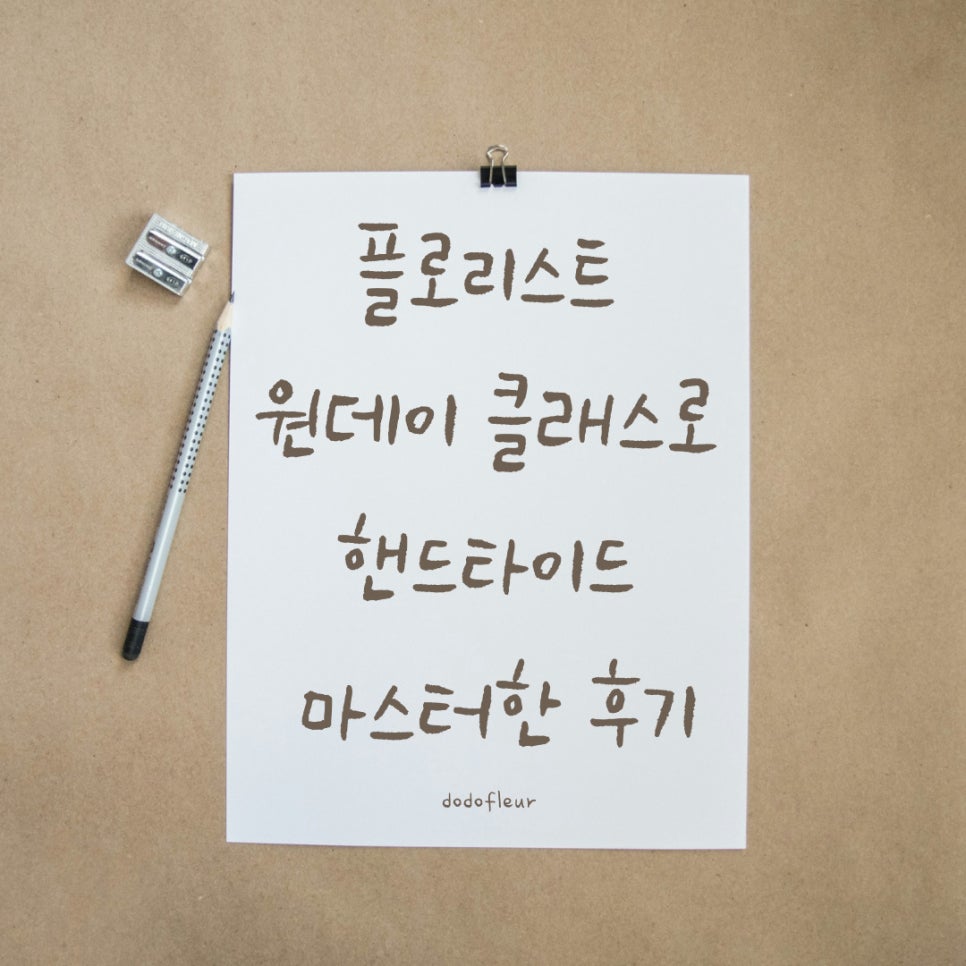 플로리스트
원데이 클래스로
핸드타이드
마스터한 후기
dodofleur